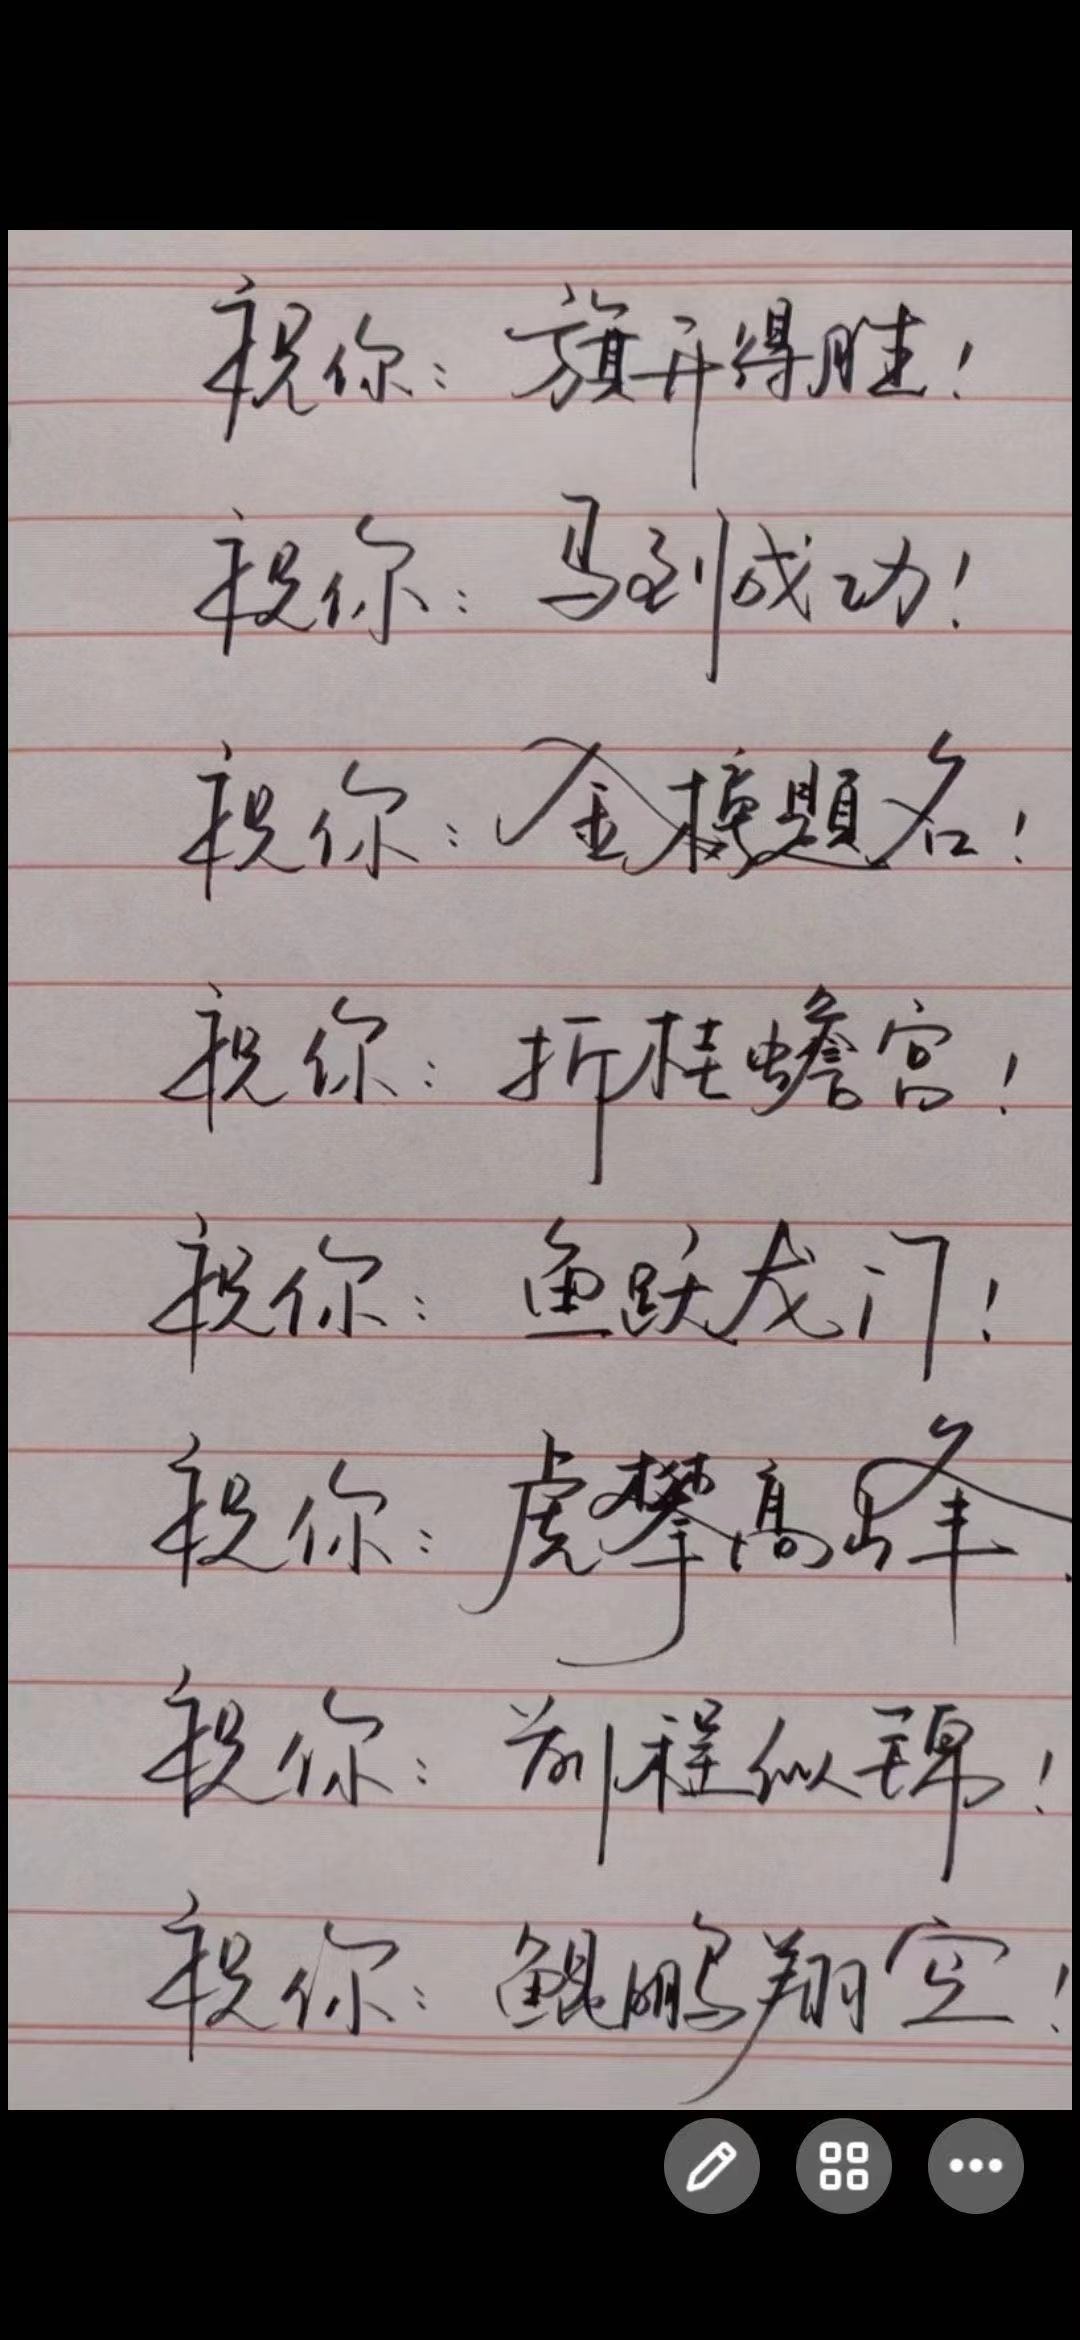 祝你：旗开得胜！
祝你：马到成功！
祝你：金榜题名！
祝你：折桂蟾宫！
祝你：鱼跃龙门！
祝你：虎攀高峰
祝你：前程似锦！
祝你：鲲鹏翔空！